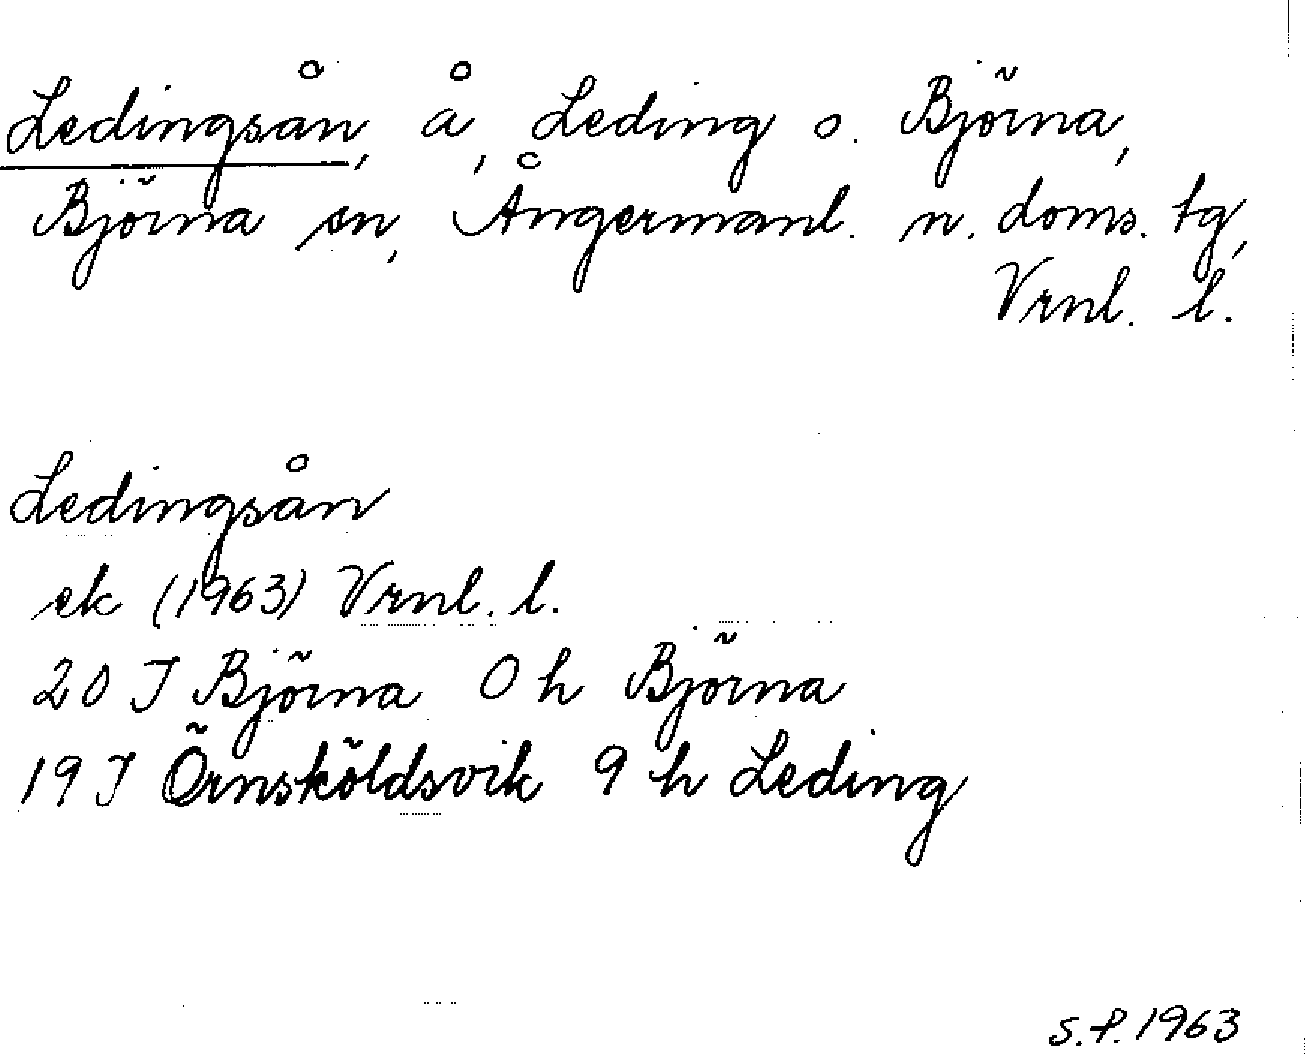 Ledingsån, å, Leding o. Björna,
Björna sn, Ångermanl. n. doms. tg,
Vrnl. l.
Ledingsån
ek (1963) Vrnl. l.
20 J Björna 0 h Björna
19 J Örnsköldsvik 9 h Leding
S.P. 1963